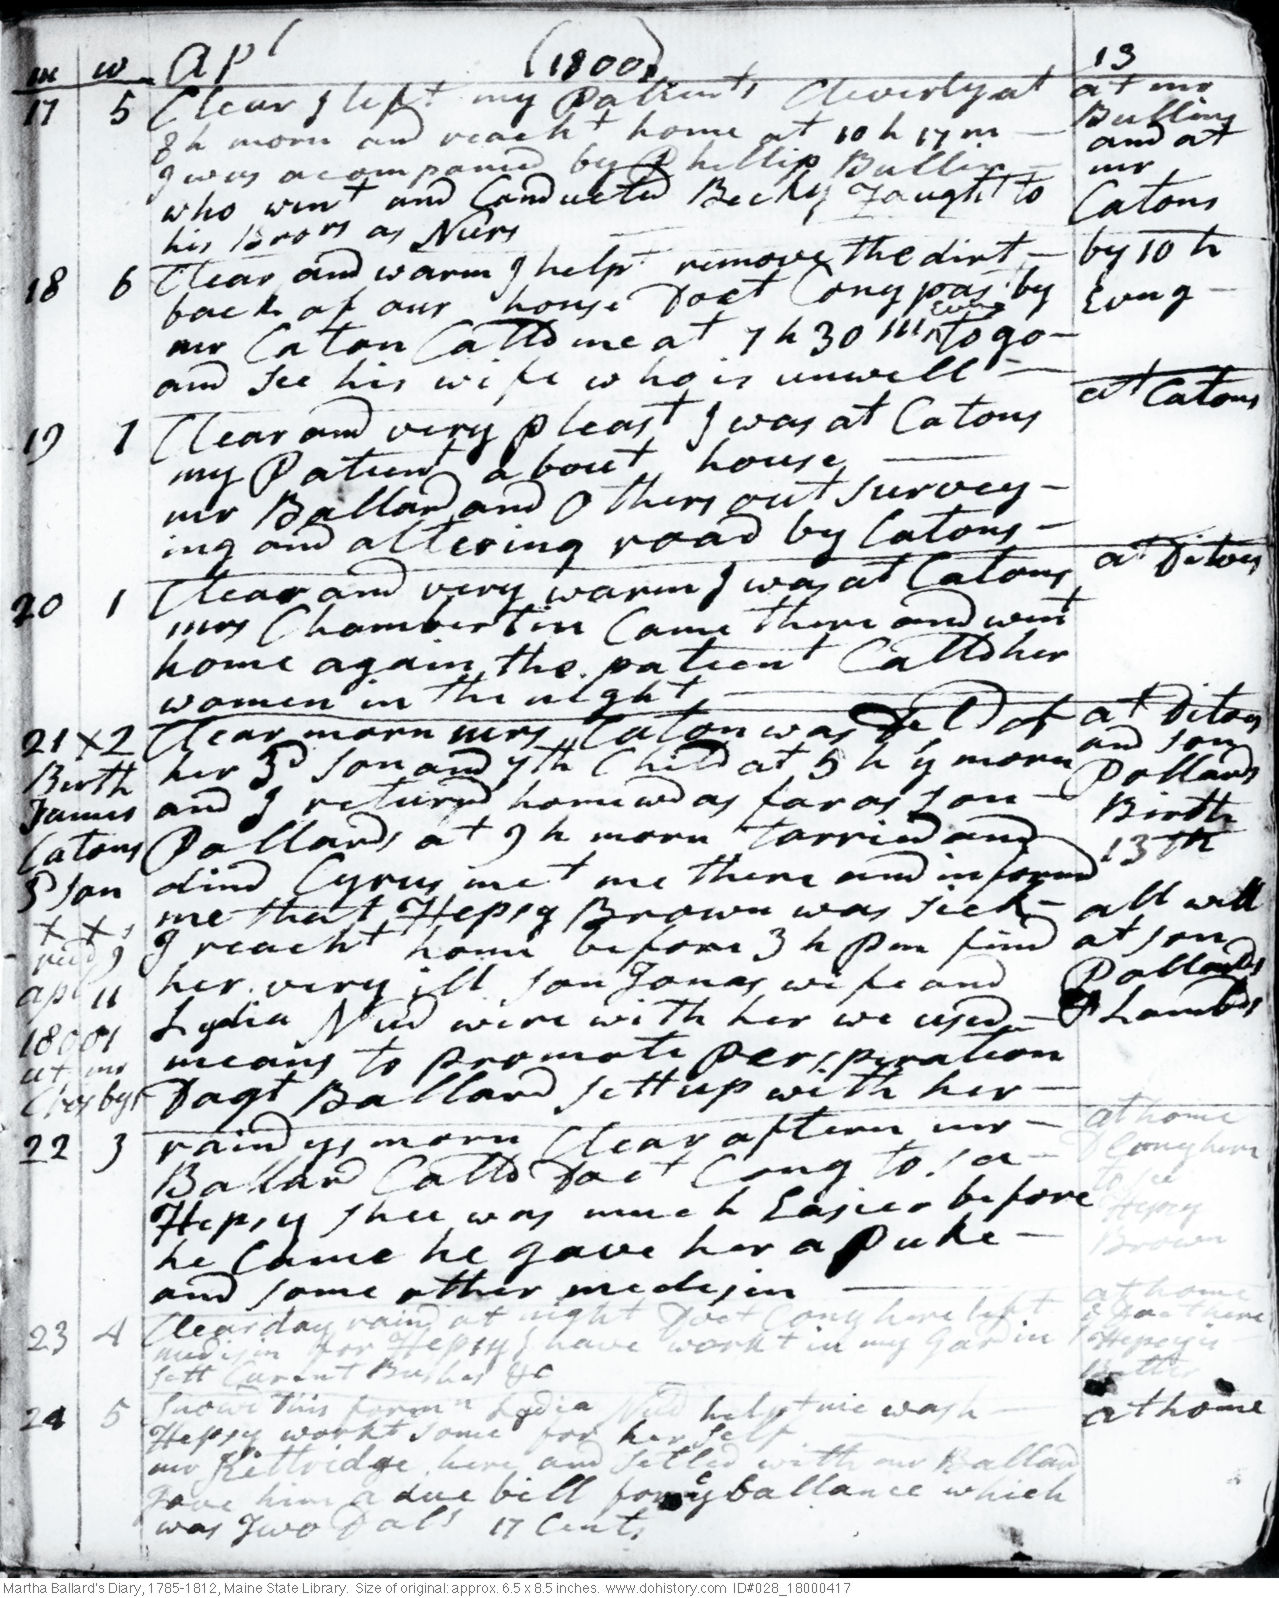 m w Apl (1800) 13
17 5 Clear I left my Patients Cleverly at at mr
8 h morn and reacht home at 10 h 17 m — Bullins
I was acompanied by Phillip Bullin — and at
who wint and Conducted Becky Faught to mr Catons
his Brors as Nurs
18 6 Clear and warm I helpt remove the dirt — by 10 h
back of our house Doct Cony pas by Evng —
mr Caton Calld me at 7 h 30 m Evng to go —
and See his wife who is unwell —
19 7 Clear and very pleast I was at Catons at Catons
my Patient about house —
mr Ballard and Others out Survey —
ing and altering road by Catons —
20 1 Clear and very warm I was at Catons at Ditoes
mrs Chamberlin Came there and wint
home again, the patient Calld her
women in the night —
21 x 2 Clear morn mrs Caton was deld of at Ditos
Birth her 3d Son and 7th Child at 5 h y morn and Son
James and I returnd homewd as far as Son — Pollards
Catons Pollards at 9 h morn Tarried and Birth
3d Son dind Cyrus met me there and informd 13th
x x me that Hepsy Brown was Sick — all well
recd 9 I reacht home before 3 h Pm find at Son
apl 11 her very ill Son Jonas wife and Pollards
18001 Lydia Nud were with her we used — & Lambds
at mr means to promote perspiration
Crosbys Dagt Ballard Sett up with her —
22 3 raind ys morn Clear aftern mr — at home
Ballard Calld Doct Cony to See — D Cony here
Hepsy Shee was much Easier before to See
he Came he gave her a Puke — Hepsy
and Some other medisin — Brown
23 4 Clear day raind at night Doct Cony here left at home
medisin for Hepsy I have workt in my Gardin & Doct here
Sett Curent Bushes &c Hepsy is
Better
24 5 Snowd this foremn Lydia Nud helpt me wash — at home
Hepsy workt Some for her Self
mr Kittridge here and Setled with mr Ballard
Gave him a due bill for ye ballance which
was Two Dals 17 Cents
Martha Ballard's Diary, 1785-1812, Maine State Library. Size of original: approx. 6.5 x 8.5 inches. www.dohistory.com ID#028_18000417